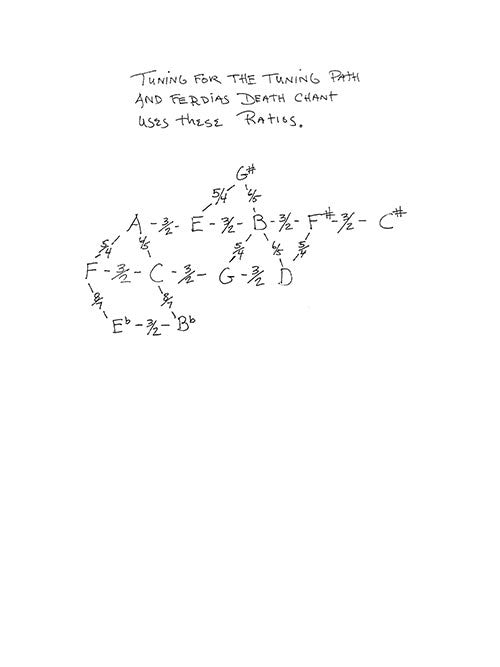 TUNING FOR THE TUNING PATH
AND FERDIAS DEATH CHANT
USES THESE RATIOS.
G#
5/4 6/5
A - 3/2 - E - 3/2 - B - 3/2 - F# - 3/2 - C#
5/4 6/5 5/4 6/5 5/4
F - 3/2 - C - 3/2 - G - 3/2 D
8/7 8/7
Eb - 3/2 - Bb